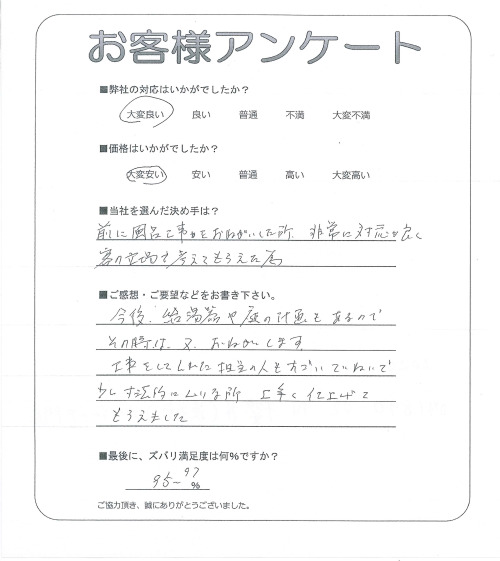 お客様アンケート
■弊社の対応はいかがでしたか？
大変良い 良い 普通 不満 大変不満
■価格はいかがでしたか？
大変安い 安い 普通 高い 大変高い
■当社を選んだ決め手は？
前に風呂工事をおねがいした所、非常に対応が良く
客の立場で考えてもらえた為
■ご感想・ご要望などをお書き下さい。
今後、給湯器や庭の計画もあるので
その時は、又、おねがいします
工事をしてくれた担当の人もすごいていねいで
少し寸法的にムリな所 上手く仕上げて
もらえました
■最後に、ズバリ満足度は何％ですか？
95〜97
％
ご協力頂き、誠にありがとうございました。